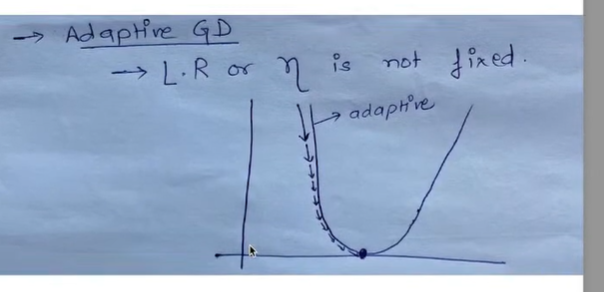 → Adaptive GD
→ L.R or η is not fixed.
→ adaptive